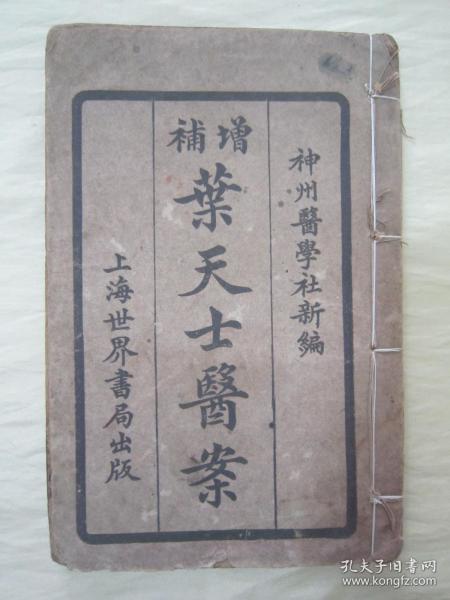 神州醫學社新編
增補
葉天士醫案
上海世界書局出版
孔夫子旧书网
www.kongfz.com